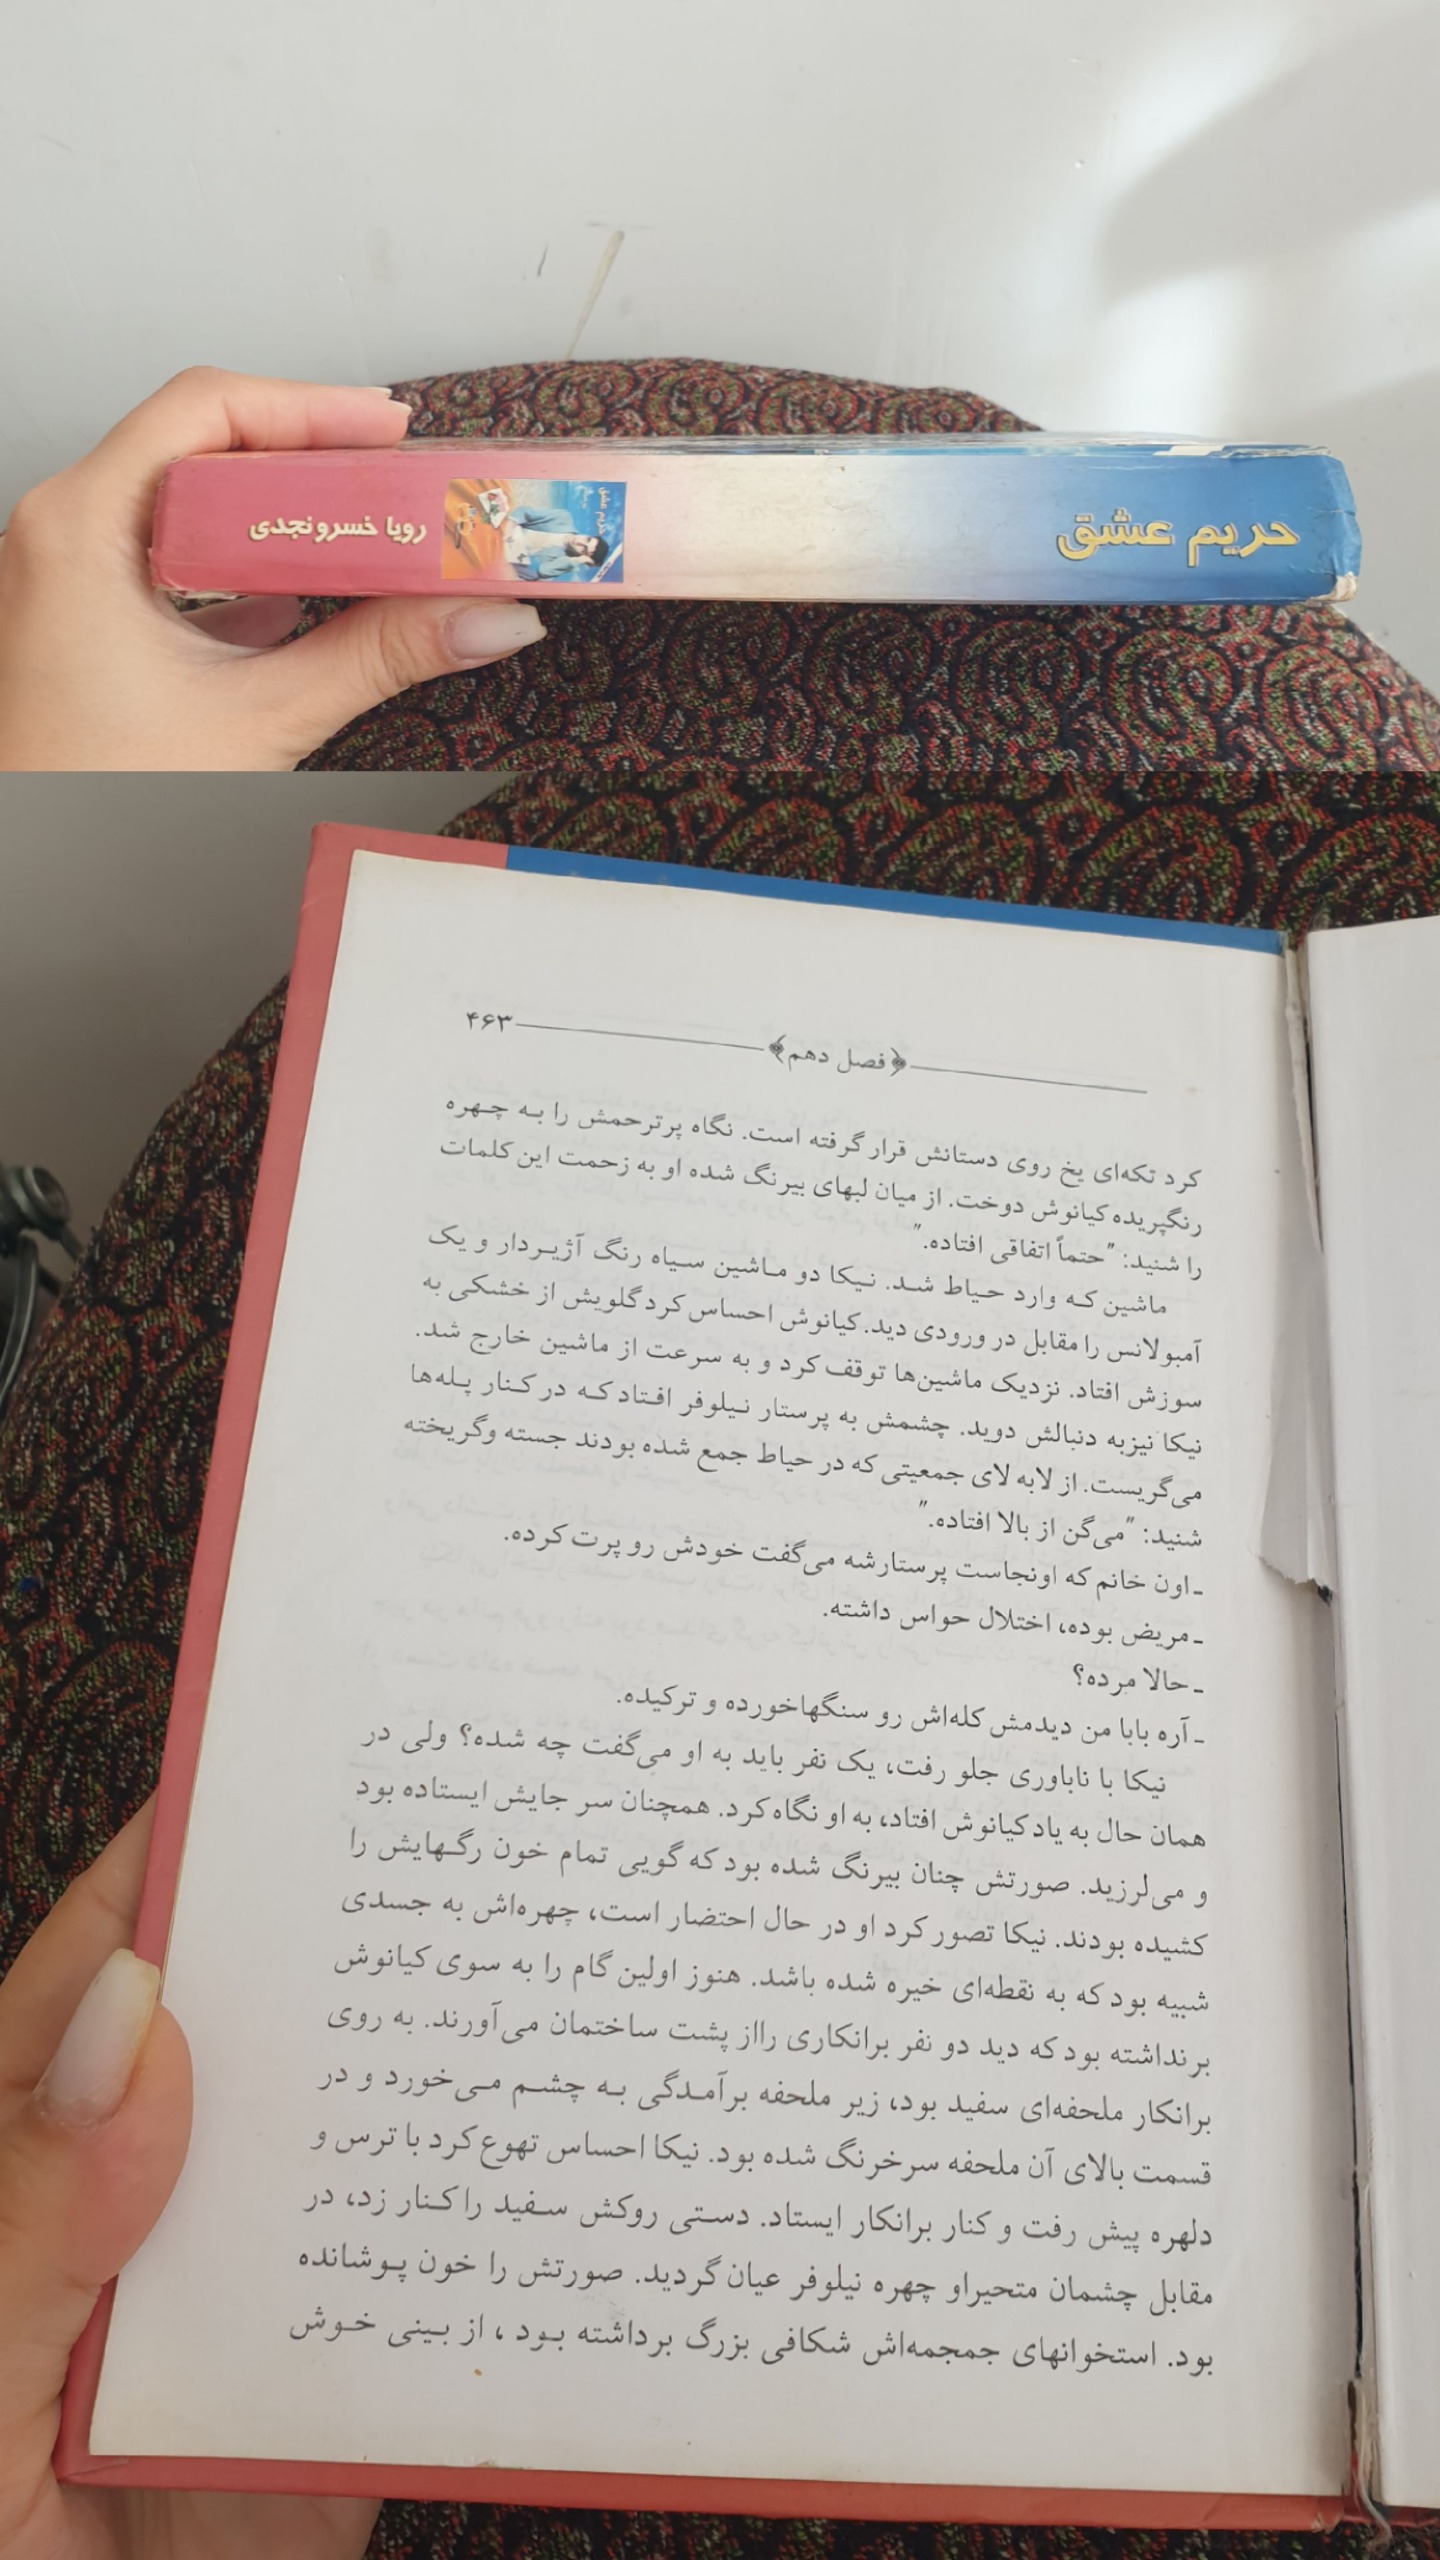 حریم عشق
رویا خسرونجدی
حریم عشق
فصل دهم ۴۶۳
کرد تکه‌ای یخ روی دستانش قرار گرفته است. نگاه پرترحمش را به چهره
رنگپریده کیانوش دوخت. از میان لبهای بیرنگ شده او به زحمت این کلمات
را شنید: "حتماً اتفاقی افتاده."
ماشین که وارد حیاط شد. نیکا دو ماشین سیاه رنگ آژیردار و یک
آمبولانس را مقابل در ورودی دید. کیانوش احساس کرد گلویش از خشکی به
سوزش افتاد. نزدیک ماشین‌ها توقف کرد و به سرعت از ماشین خارج شد.
نیکا نیزبه دنبالش دوید. چشمش به پرستار نیلوفر افتاد که در کنار پله‌ها
می‌گریست. از لابه لای جمعیتی که در حیاط جمع شده بودند جسته وگریخته
شنید: "می‌گن از بالا افتاده."
ـ اون خانم که اونجاست پرستارشه می‌گفت خودش رو پرت کرده.
ـ مریض بوده، اختلال حواس داشته.
ـ حالا مرده؟
ـ آره بابا من دیدمش کله‌اش رو سنگهاخورده و ترکیده.
نیکا با ناباوری جلو رفت، یک نفر باید به او می‌گفت چه شده؟ ولی در
همان حال به یاد کیانوش افتاد، به او نگاه کرد. همچنان سر جایش ایستاده بود
و می‌لرزید. صورتش چنان بیرنگ شده بود که گویی تمام خون رگهایش را
کشیده بودند. نیکا تصور کرد او در حال احتضار است، چهره‌اش به جسدی
شبیه بود که به نقطه‌ای خیره شده باشد. هنوز اولین گام را به سوی کیانوش
برنداشته بود که دید دو نفر برانکاری رااز پشت ساختمان می‌آورند. به روی
برانکار ملحفه‌ای سفید بود، زیر ملحفه برآمدگی به چشم می‌خورد و در
قسمت بالای آن ملحفه سرخرنگ شده بود. نیکا احساس تهوع کرد با ترس و
دلهره پیش رفت و کنار برانکار ایستاد. دستی روکش سفید را کنار زد، در
مقابل چشمان متحیراو چهره نیلوفر عیان گردید. صورتش را خون پوشانده
بود. استخوانهای جمجمه‌اش شکافی بزرگ برداشته بود ، از بینی خوش